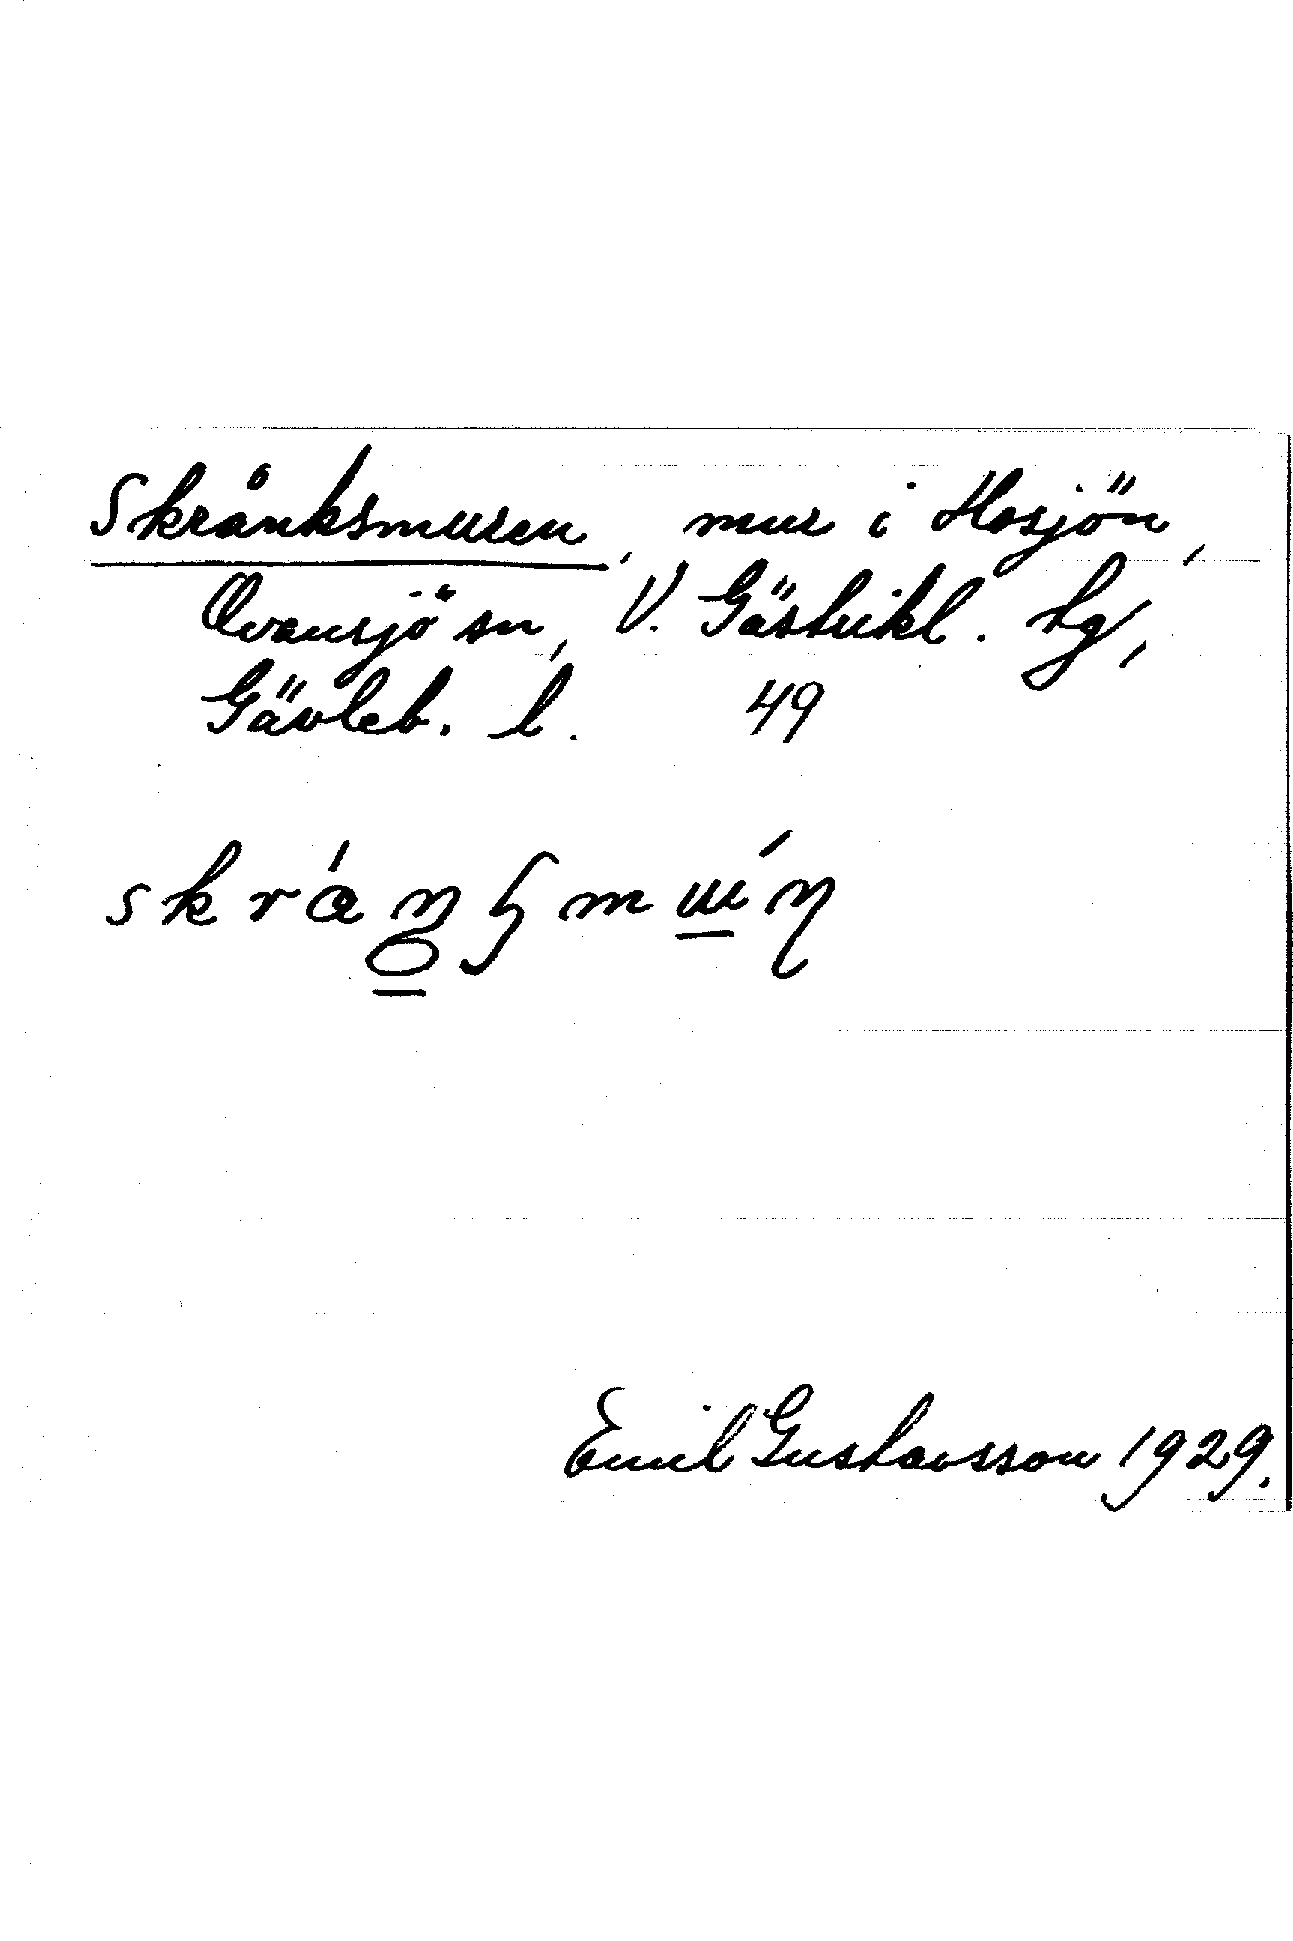 Skränksmuren, mur i Hosjön,
Ovansjö sn, V. Gästrikl. tg,
Gävleb. l. 49
Emil Gustavsson 1929.